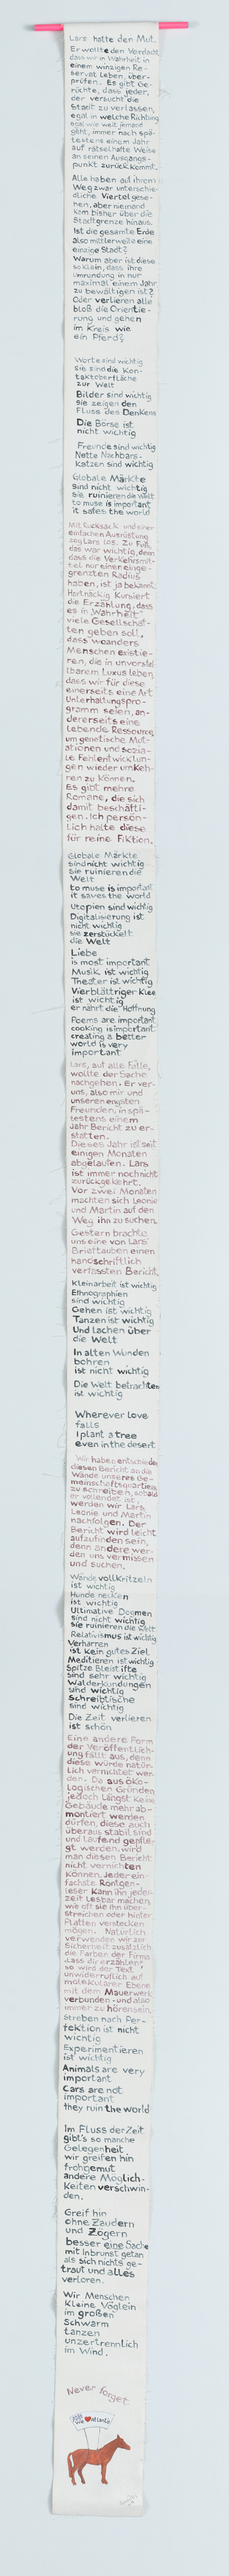 Lars hatte den Mut.
Er wollte den Verdacht,
dass wir in Wahrheit in
einem winzigen Re-
servat leben, über-
prüfen. Es gibt Ge-
rüchte, dass jeder,
der versucht die
Stadt zu verlassen,
egal in welche Richtung
egal wie weit jemand
geht, immer nach spä-
testens einem Jahr
auf rätselhafte Weise
an seinen Ausgangs-
punkt zurück kommt.
Alle haben auf ihrem
Weg zwar unterschie-
dliche Viertel gese-
hen, aber niemand
kam bisher über die
Stadtgrenze hinaus.
Ist die gesamte Erde
also mittlerweile eine
einzige Stadt?
Warum aber ist diese
so klein, dass ihre
Umrundung in nur
maximal einem Jahr
zu bewältigen ist?
Oder verlieren alle
bloß die Orientie-
rung und gehen
im Kreis wie
ein Pferd?
Worte sind wichtig
sie sind die Kon-
taktoberfläche
zur Welt
Bilder sind wichtig
sie zeigen den
Fluss des Denkens
Die Börse ist
nicht wichtig
Freunde sind wichtig
Nette Nachbars-
katzen sind wichtig
Globale Märkte
sind nicht wichtig
sie ruinieren die Welt
to muse is important
it safes the world
Mit Rucksack und einer
einfachen Ausrüstung
zog Lars los. Zu Fuß,
das war wichtig, denn
dass die Verkehrsmit-
tel nur einen einge-
grenzten Radius
haben, ist ja bekannt.
Hartnäckig kursiert
die Erzählung, dass
es in Wahrheit
viele Gesellschaf-
ten geben soll,
dass woanders
Menschen existie-
ren, die in unvorstel
lbarem Luxus leben,
dass wir für diese
einerseits eine Art
Unterhaltungspro-
gramm seien, an-
dererseits eine
lebende Ressource,
um genetische Mut-
ationen und sozia-
le Fehlentwicklun-
gen wieder umkeh-
ren zu können.
Es gibt mehre
Romane, die sich
damit beschäfti-
gen. Ich persön-
lich halte diese
für reine Fiktion.
Globale Märkte
sind nicht wichtig
sie ruinieren die
Welt
to muse is important
it saves the world
Utopien sind wichtig
Digitalisierung ist
nicht wichtig
sie zerstückelt
die Welt
Liebe
is most important
Musik ist wichtig
Theater ist wichtig
Vierblättriger Klee
ist wichtig
er nährt die Hoffnung
Poems are important
cooking is important
creating a better
world is very
important
Lars, auf alle Fälle,
wollte der Sache
nachgehen. Er ver-
uns, also mir und
unseren engsten
Freunden, in spä-
testens einem
Jahr Bericht zu er-
statten.
Dieses Jahr ist seit
einigen Monaten
abgelaufen. Lars
ist immer noch nicht
zurückgekehrt.
Vor zwei Monaten
machten sich Leonie
und Martin auf den
Weg ihn zu suchen.
Gestern brachte
uns eine von Lars'
Brieftauben einen
handschriftlich
verfassten Bericht.
Kleinarbeit ist wichtig
Ethnographien
sind wichtig
Gehen ist wichtig
Tanzen ist wichtig
Und lachen über
die Welt
In alten Wunden
bohren
ist nicht wichtig
Die Welt betrachten
ist wichtig
Wherever love
falls
I plant a tree
even in the desert
Wir haben entschieden
diesen Bericht an die
Wände unseres Ge-
meinschaftsquartiers
zu schreiben, sobald
er vollendet ist,
werden wir Lars,
Leonie und Martin
nachfolgen. Der
Bericht wird leicht
aufzufinden sein,
denn andere wer-
den uns vermissen
und suchen.
Wände vollkritzeln
ist wichtig
Hunde necken
ist wichtig
Ultimative Dogmen
sind nicht wichtig
sie ruinieren die Welt
Relativismus ist wichtig
Verharren
ist kein gutes Ziel
Meditieren ist wichtig
Spitze Bleistifte
sind sehr wichtig
Walderkundungen
sind wichtig
Schreibtische
sind wichtig
Die Zeit verlieren
ist schön
Eine andere Form
der Veröffentlich-
ung fällt aus, denn
diese würde natür-
lich vernichtet wer-
den. Da aus öko-
logischen Gründen
jedoch längst keine
Gebäude mehr ab-
montiert werden
dürfen, diese auch
überaus stabil sind
und laufend gepfle-
gt werden, wird
man diesen Bericht
nicht vernichten
können. Jeder ein-
fachste Röntgen-
leser kann ihn jeder-
zeit lesbar machen,
wie oft sie ihn über-
streichen oder hinter
Platten verstecken
mögen. Natürlich
verwenden wir zur
Sicherheit zusätzlich
die Farben der Firma
„Lass dir erzählen"
so wird der Text
unwiderruflich auf
molekularer Ebene
mit dem Mauerwerk
verbunden - und also
immer zu hören sein.
Streben nach Per-
fektion ist nicht
wichtig
Experimentieren
ist wichtig
Animals are very
important
Cars are not
important
they ruin the world
Im Fluss der Zeit
gibt's so manche
Gelegenheit
wir greifen hin
frohgemut
andere Möglich-
keiten verschwin-
den.
Greif hin
ohne Zaudern
und Zögern
besser eine Sache
mit Inbrunst getan
als sich nichts ge-
traut und alles
verloren.
Wir Menschen
kleine Vöglein
im großen
Schwarm
tanzen
unzertrennlich
im Wind.
Never forget
We ♥ Atlantis